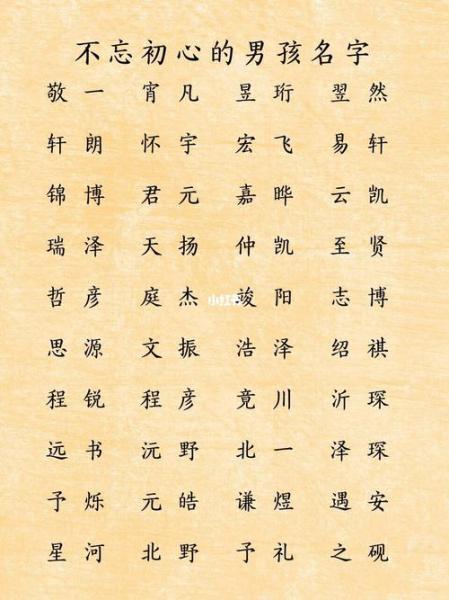 不忘初心的男孩名字
敬一 宵凡 昱珩 翌然
轩朗 怀宇 宏飞 易轩
锦博 君元 嘉晔 云凯
瑞泽 天扬 仲凯 至贤
哲彦 庭杰 竣阳 志博
思源 文振 浩泽 绍祺
程锐 程彦 竟川 沂琛
远书 沅野 北一 泽琛
予烁 元皓 谦煜 遇安
星河 北野 予礼 之砚